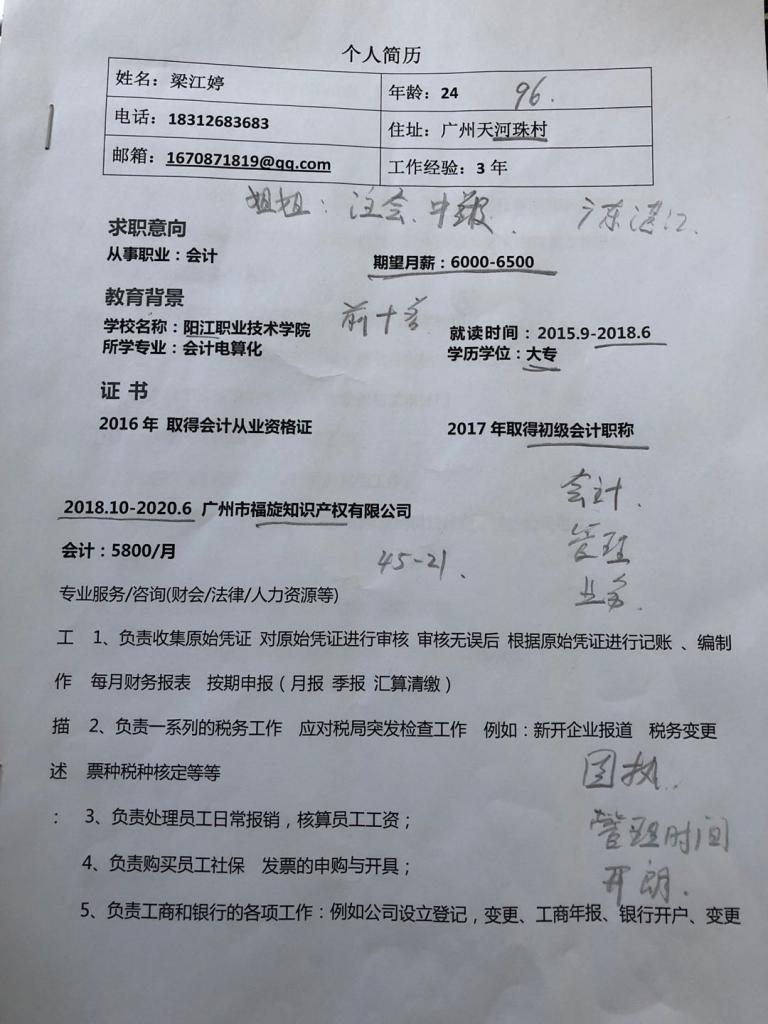 个人简历
姓名：梁江婷 年龄：24 96.
电话：18312683683 住址：广州天河珠村
邮箱：1670871819@qq.com 工作经验：3 年
姐姐：注会、中级、 广东湛江.
求职意向
从事职业：会计 期望月薪：6000-6500
教育背景
前十名
学校名称：阳江职业技术学院 就读时间：2015.9-2018.6
所学专业：会计电算化 学历学位：大专
证 书
2016 年 取得会计从业资格证 2017 年取得初级会计职称
会计.
2018.10-2020.6 广州市福旋知识产权有限公司
管理
会计：5800/月 45-21、
专业服务/咨询(财会/法律/人力资源等) 业务.
工 1、负责收集原始凭证 对原始凭证进行审核 审核无误后 根据原始凭证进行记账 、编制
作 每月财务报表 按期申报（月报 季报 汇算清缴）
描 2、负责一系列的税务工作 应对税局突发检查工作 例如：新开企业报道 税务变更
述 票种税种核定等等 固执.
： 3、负责处理员工日常报销，核算员工工资； 管理时间
4、负责购买员工社保 发票的申购与开具； 开朗.
5、负责工商和银行的各项工作：例如公司设立登记，变更、工商年报、银行开户、变更